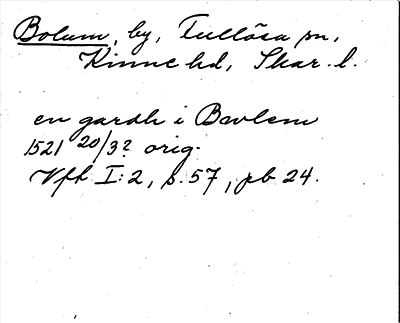 Bolum, by, Fullösa sn,
Kinne hd, Skar. l.
en gardh i Bavlem
1521 20/3? orig.
Vfh I:2, s. 57, pb 24.